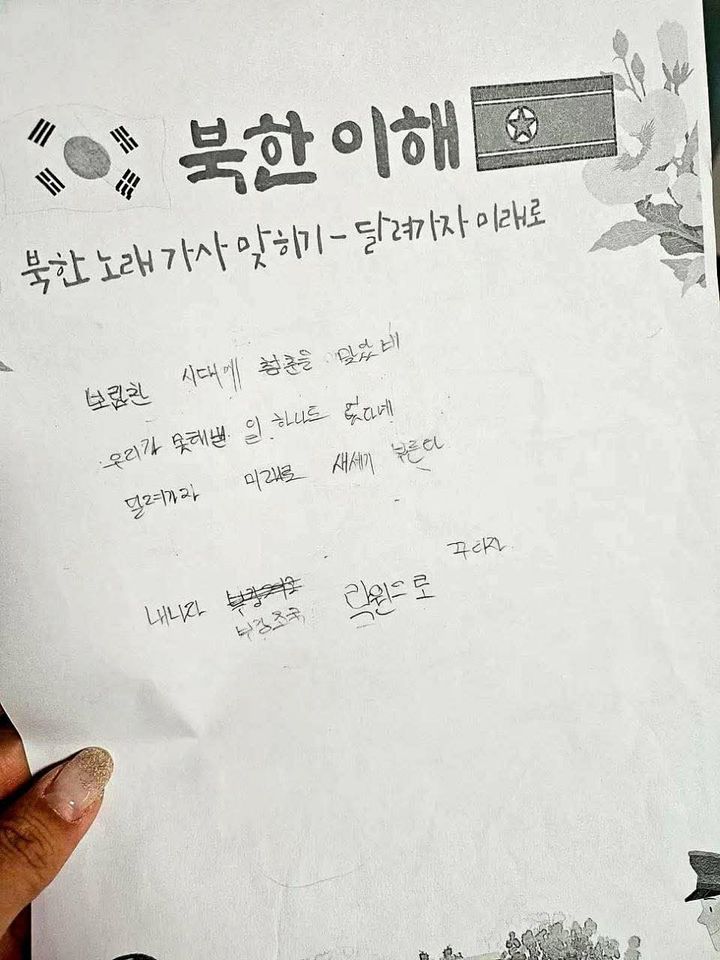 북한 이해
북한 노래 가사 맞히기 - 달려가자 미래로
보람찬 시대에 청춘을 맞았네
우리가 못해낼 일 하나도 없다네
달려가자 미래로 새세기 부른다
꾸리자
내나라 부강조국 락원으로